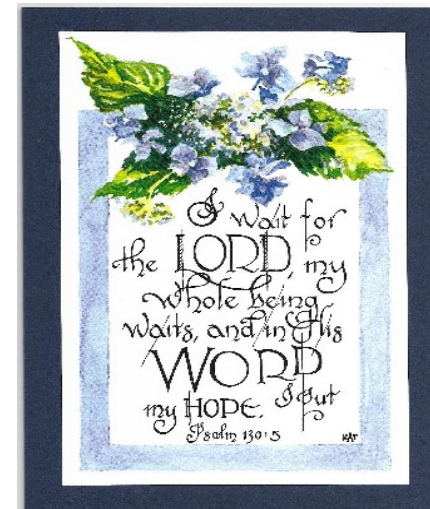 I wait for
the LORD, my
whole being
waits, and in His
WORD
I put
my HOPE.
Psalm 130:5
KAT